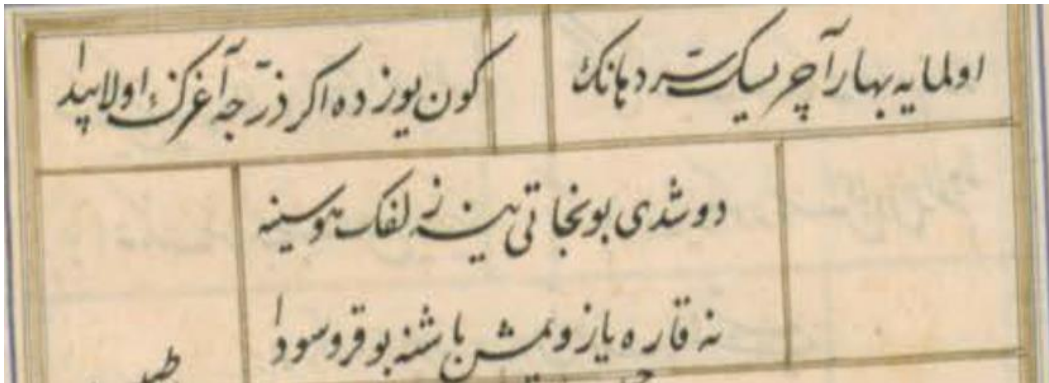 اولمایه بهار آچر سیک سرّ دهانك
كون یوزده اكر ذرّجه آغزك اولا پیدا
دوشدی بو نجاتی ینه زلفك هوسینه
نه قاره یازولمش باشنه بو قرو سودا